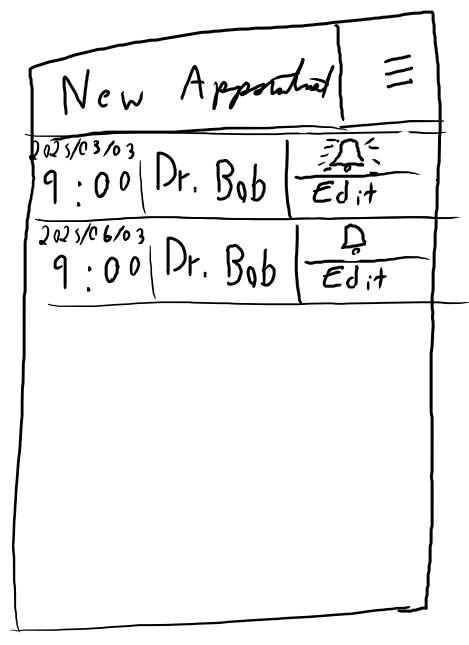 New Appointment
2025/03/03
9:00 Dr. Bob
Edit
2025/06/03
9:00 Dr. Bob
Edit